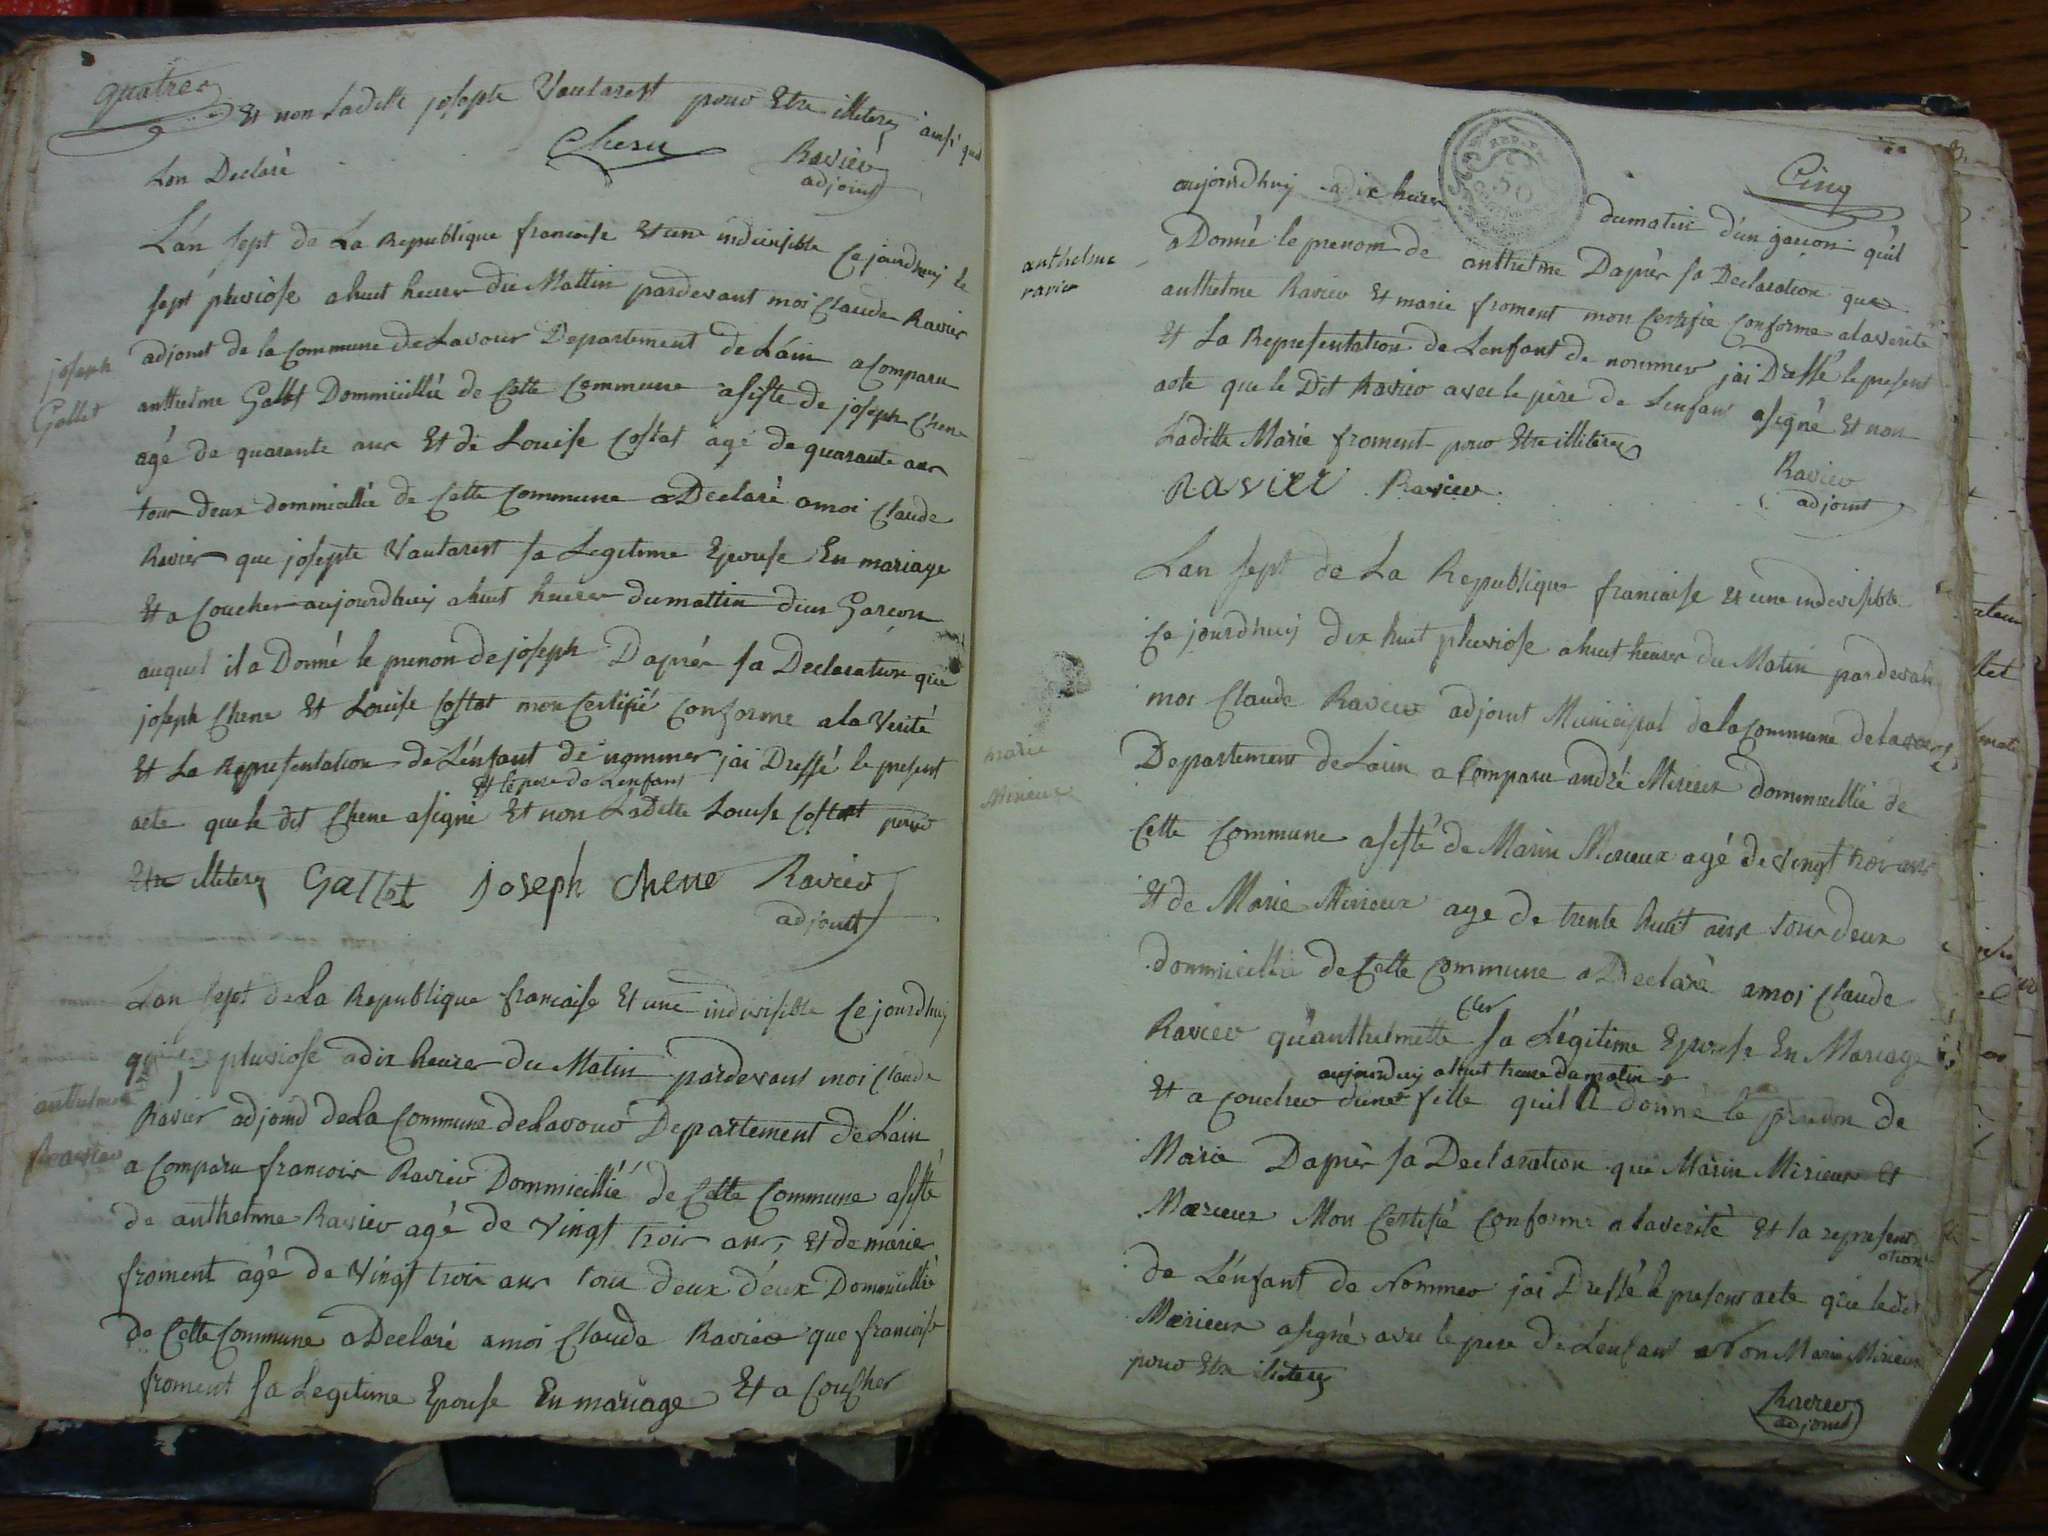 quatre
Et non Laditte josepte Vautarest pour Etre illiteré ainsi que
Lon Declaré
Chene
Ravier
adjoint
Lan sept de La Republique francaise Et une indivisible Ce jourdhuy le
sept pluviose a huit heures du Mattin pardevant moi Claude Ravier
adjoint de la Commune de Lavour Departement de Lain a Comparu
joseph
Gallet
anthelme Gallet Dommicillié de Cette Commune asiste de joseph Chene
agé de quarante ans Et de Louise Costat agé de quarante ans
tous deux dommicillié de Cette Commune a Declaré a moi Claude
Ravier que josepte Vautarest sa Legitime Epouse En mariage
Et a Coucher aujourdhuy a huit heures du mattin d'un Garcon
auquel il a Donné le prenon de joseph Daprés sa Declaration que
joseph Chene Et Louise Costat mon Certifié Conforme a la Verité
Et La Representation de Lénfant de nommer jai Dressé le present
Et le pere de Lenfant
acte que le dit Chene a signé Et non Laditte Louise Costat pour
Etre illiteré Gallet joseph chene Ravier
adjoint
Lan sept de La Republique francaise Et une indivisible Ce jourdhuy
pluviose a dix heures du Matin pardevant moi Claude
anthelme
Ravier
Ravier adjoind de La Commune de Lavour Departement de Lain
a Comparu francois Ravier Dommicillié de Cette Commune asisté
de anthelme Ravier agé de Vingt trois ans, Et de marie
froment agé de Vingt trois ans tous deux d'eux Dommicillié
de Cette Commune a Declaré a moi Claude Ravier que francoise
froment sa Legitime Epouse En mariage Et a Coucher
Cinq
aujourdhuy a dix heures du matin d'un garcon qu'il
anthelme
ravier
a Donné le prenom de anthelme Daprès sa Declaration que
anthelme Ravier Et marie froment mon Certifié Conforme a la verité
Et La Representation de Lenfant de nommer jai Dressé le present
acte que le Dit Ravier avec le pére de Lenfant a signé Et non
Laditte Marie froment pour Etre illiteré
Ravier Ravier
Ravier
adjoint
Lan sept de La Republique francaise Et une indivisible
Ce jourdhuy dix huit pluviose a huit heures du Matin pardevant
moi Claude Ravier adjoint Municipal de la Commune de Lavour
marie
Mirieux
Departement de Lain a Comparu andré Mirieux dommicillié de
Cette Commune asisté de Marin Mirieux agé de Vingt trois ans
Et de Marie Mirieux age de trente huit ans tous deux
dommicillié de Cette Commune a Declaré a moi Claude
Ravier qu'anthelmette sa Légitime Epouse En Mariage
aujourdhuy a huit heure du matin
Et a Coucher d'une fille quil a donné le prenom de
Marie Daprès sa Declaration que Marin Mirieux Et
Marieux Mon Certifié Conforme a la verité Et la represent
ation
de Lénfant de Nommer jai Dressé le present acte que ledit
Marieux a signé avec le pere de Lenfant Non Marie Mirieux
pour Etre illiteré
Ravier
adjoint